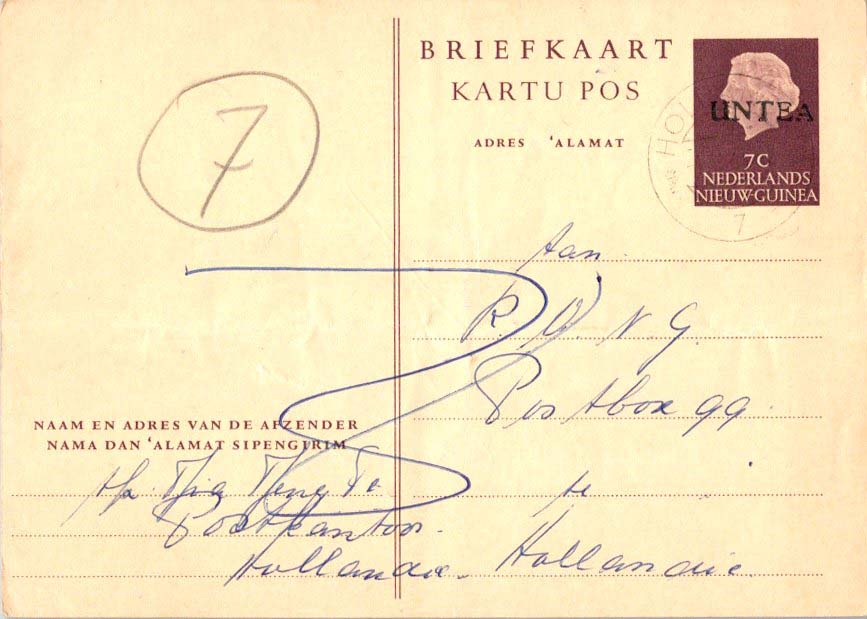 BRIEFKAART
KARTU POS
ADRES ‛ALAMAT
UNTEA
7C
NEDERLANDS
NIEUW-GUINEA
HOL
7
7
Aan
R. O. N. G.
Postbox 99.
te
Hollandia.
NAAM EN ADRES VAN DE AFZENDER
NAMA DAN ‛ALAMAT SIPENGIRIM
Postkantoor.
Hollandia.